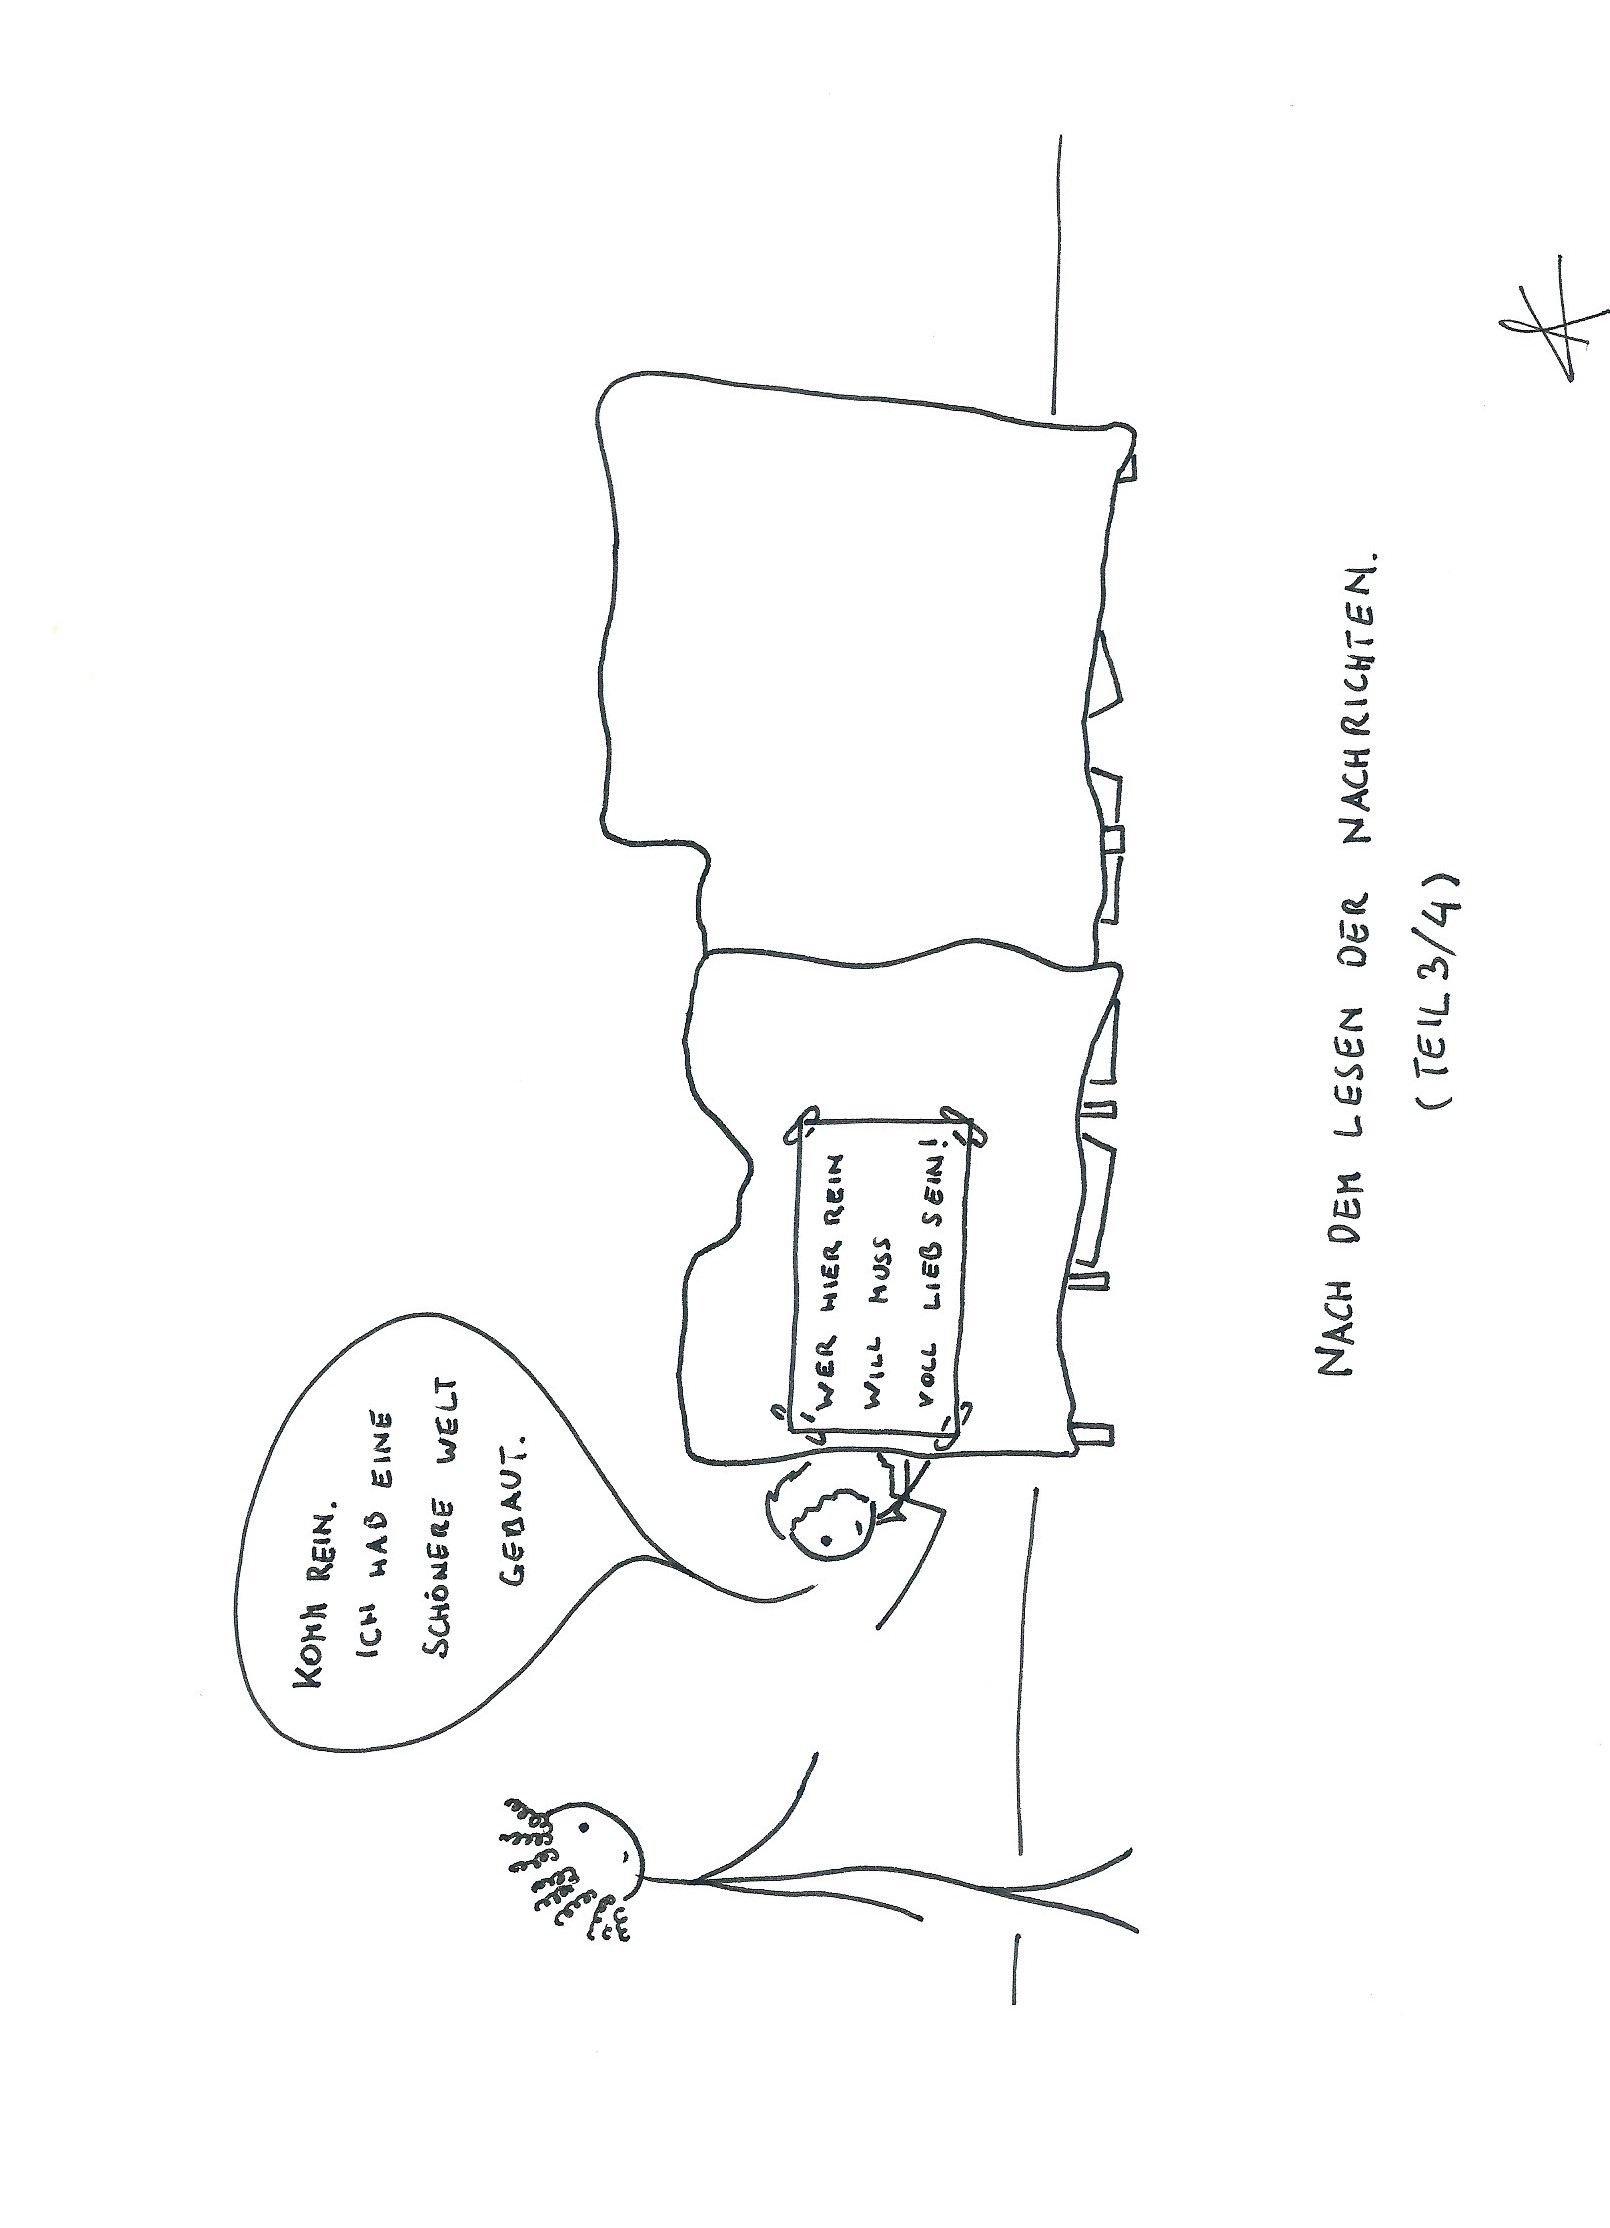 KOMM REIN.
ICH HAB EINE
SCHÖNERE WELT
GEBAUT.
WER HIER REIN
WILL MUSS
VOLL LIEB SEIN!
NACH DEM LESEN DER NACHRICHTEN.
(TEIL 3/4)